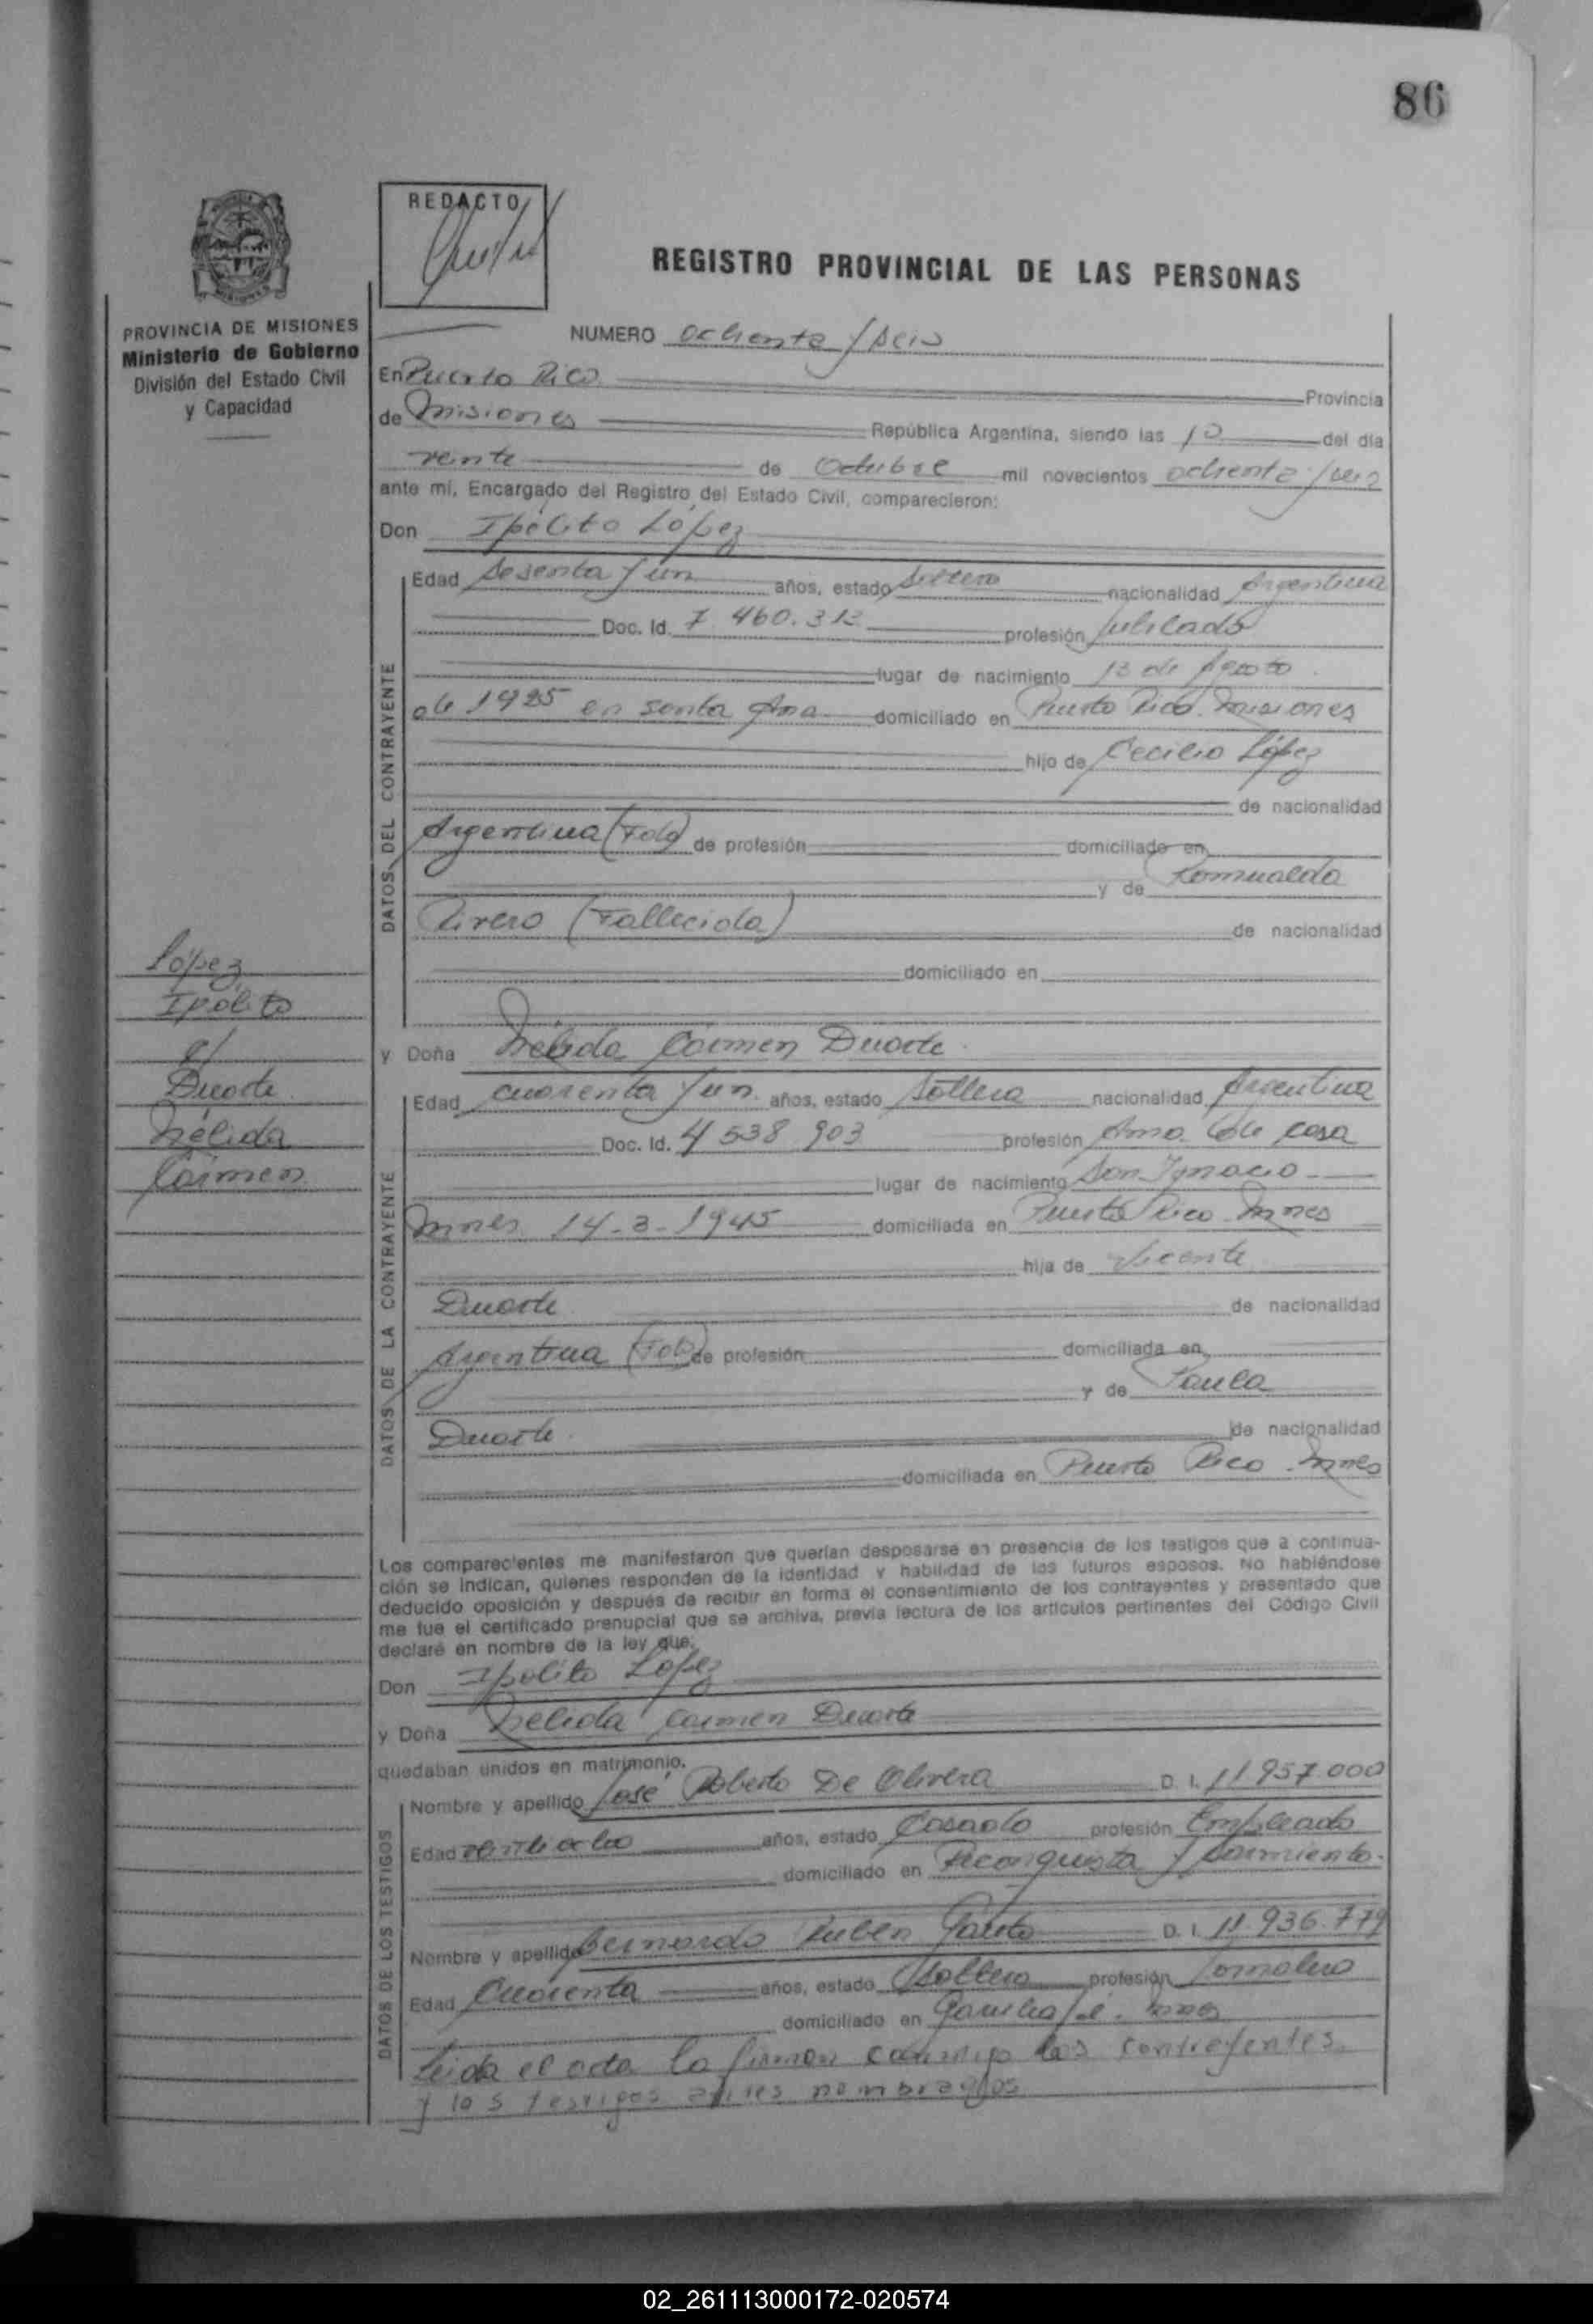 86
REDACTO
REGISTRO PROVINCIAL DE LAS PERSONAS
PROVINCIA DE MISIONES
Ministerio de Gobierno
División del Estado Civil
y Capacidad
NUMERO ochenta y seis
En Puerto Rico Provincia
de Misiones República Argentina, siendo las 10 del día
veinte de Octubre mil novecientos ochenta y seis
ante mí, Encargado del Registro del Estado Civil, comparecieron:
Don Ipólito López
DATOS DEL CONTRAYENTE
Edad sesenta y un años, estado soltero nacionalidad Argentina
Doc. Id. 7.460.313 profesión Jubilado
lugar de nacimiento 13 de Agosto
de 1925 en Santa Ana domiciliado en Puerto Rico Misiones
hijo de Cecilio López
de nacionalidad
Argentina (Fdo) de profesión domiciliado en
y de Romualda
Rivero (Fallecida) de nacionalidad
domiciliado en
López
Ipólito
c/
Duarte
Nélida
Carmen
y Doña Nélida Carmen Duarte
DATOS DE LA CONTRAYENTE
Edad cuarenta y un años, estado soltera nacionalidad Argentina
Doc. Id. 4 538 903 profesión Ama de casa
lugar de nacimiento San Ignacio
Mnes 14-3-1945 domiciliada en Puerto Rico Mnes
hija de Vicente
Duarte de nacionalidad
Argentina de profesión domiciliada en
y de Paula
Duarte de nacionalidad
domiciliada en Puerto Rico Mnes
Los comparecientes me manifestaron que querían desposarse en presencia de los testigos que a continua-
ción se indican, quienes responden de la identidad y habilidad de los futuros esposos. No habiéndose
deducido oposición y después de recibir en forma el consentimiento de los contrayentes y presentado que
me fue el certificado prenupcial que se archiva, previa lectura de los artículos pertinentes del Código Civil
declaré en nombre de la ley que:
Don Ipolito López
y Doña Nélida Carmen Duarte
quedaban unidos en matrimonio.
DATOS DE LOS TESTIGOS
Nombre y apellido José Roberto De Olivera D. I. 11957.000
Edad veintiocho años, estado Casado profesión Empleado
domiciliado en Reconquista y Sarmiento.
Nombre y apellido Bernardo Ruben D. I. 11.936.779
Edad Cuarenta años, estado Soltero profesión Jornalero
domiciliado en Mnes
Leida el acta la firman conmigo los contrayentes
y los testigos antes nombrados
02_261113000172-020574